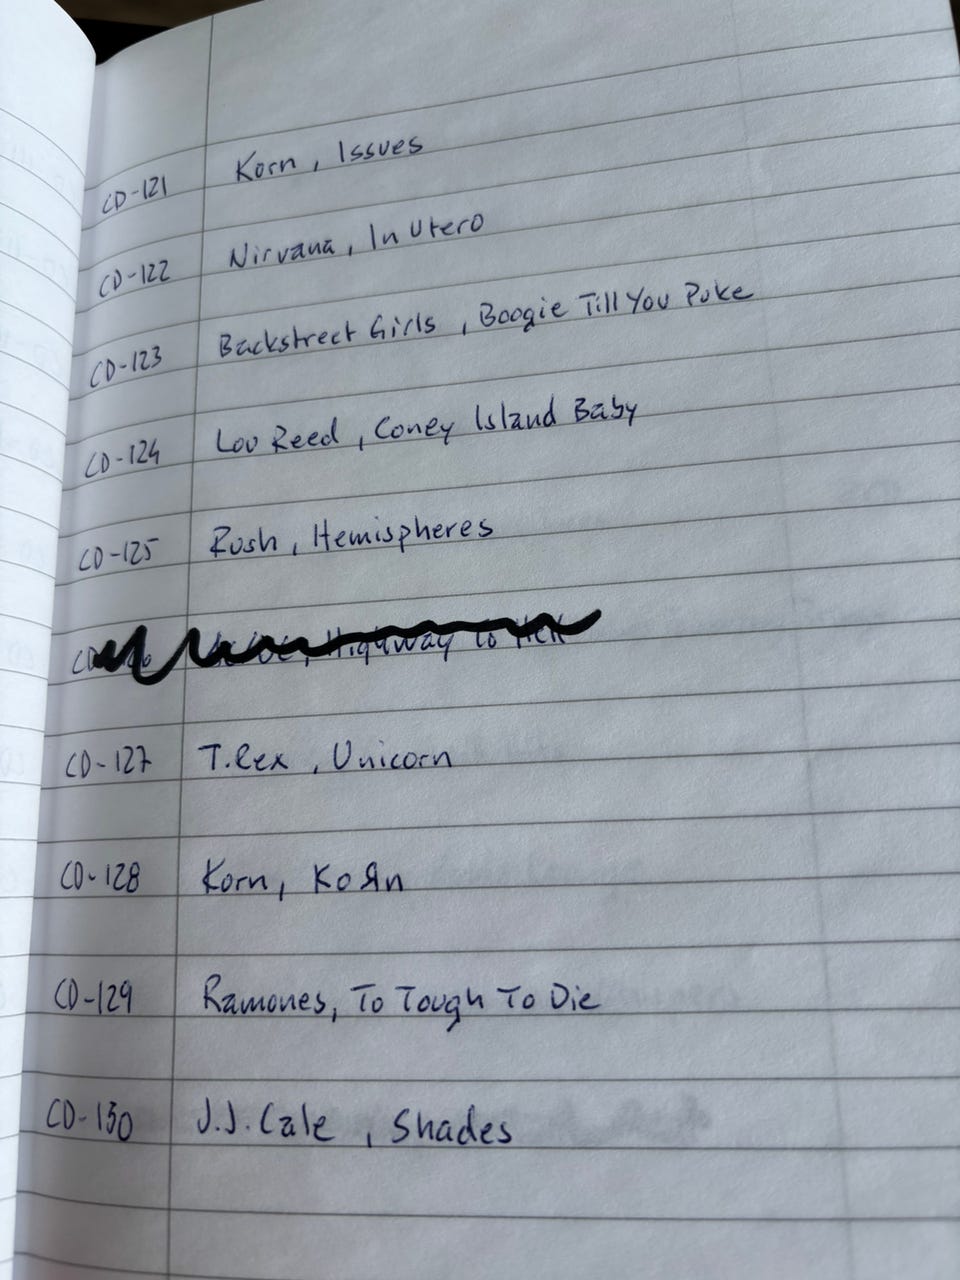 CD-121 Korn, Issues
CD-122 Nirvana, In Utero
CD-123 Backstreet Girls, Boogie Till You Puke
CD-124 Lou Reed, Coney Island Baby
CD-125 Rush, Hemispheres
Highway to Hell
CD-127 T.Rex, Unicorn
CD-128 Korn, KoЯn
CD-129 Ramones, To Tough To Die
CD-130 J.J. Cale, Shades